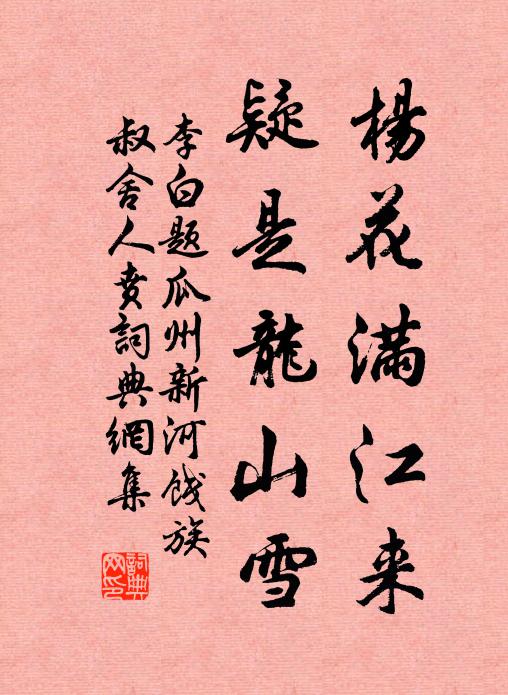 楊花满江来
疑是龍山雪
李白题瓜州新河餞族
叔舍人賁詞典網集
詞典網印